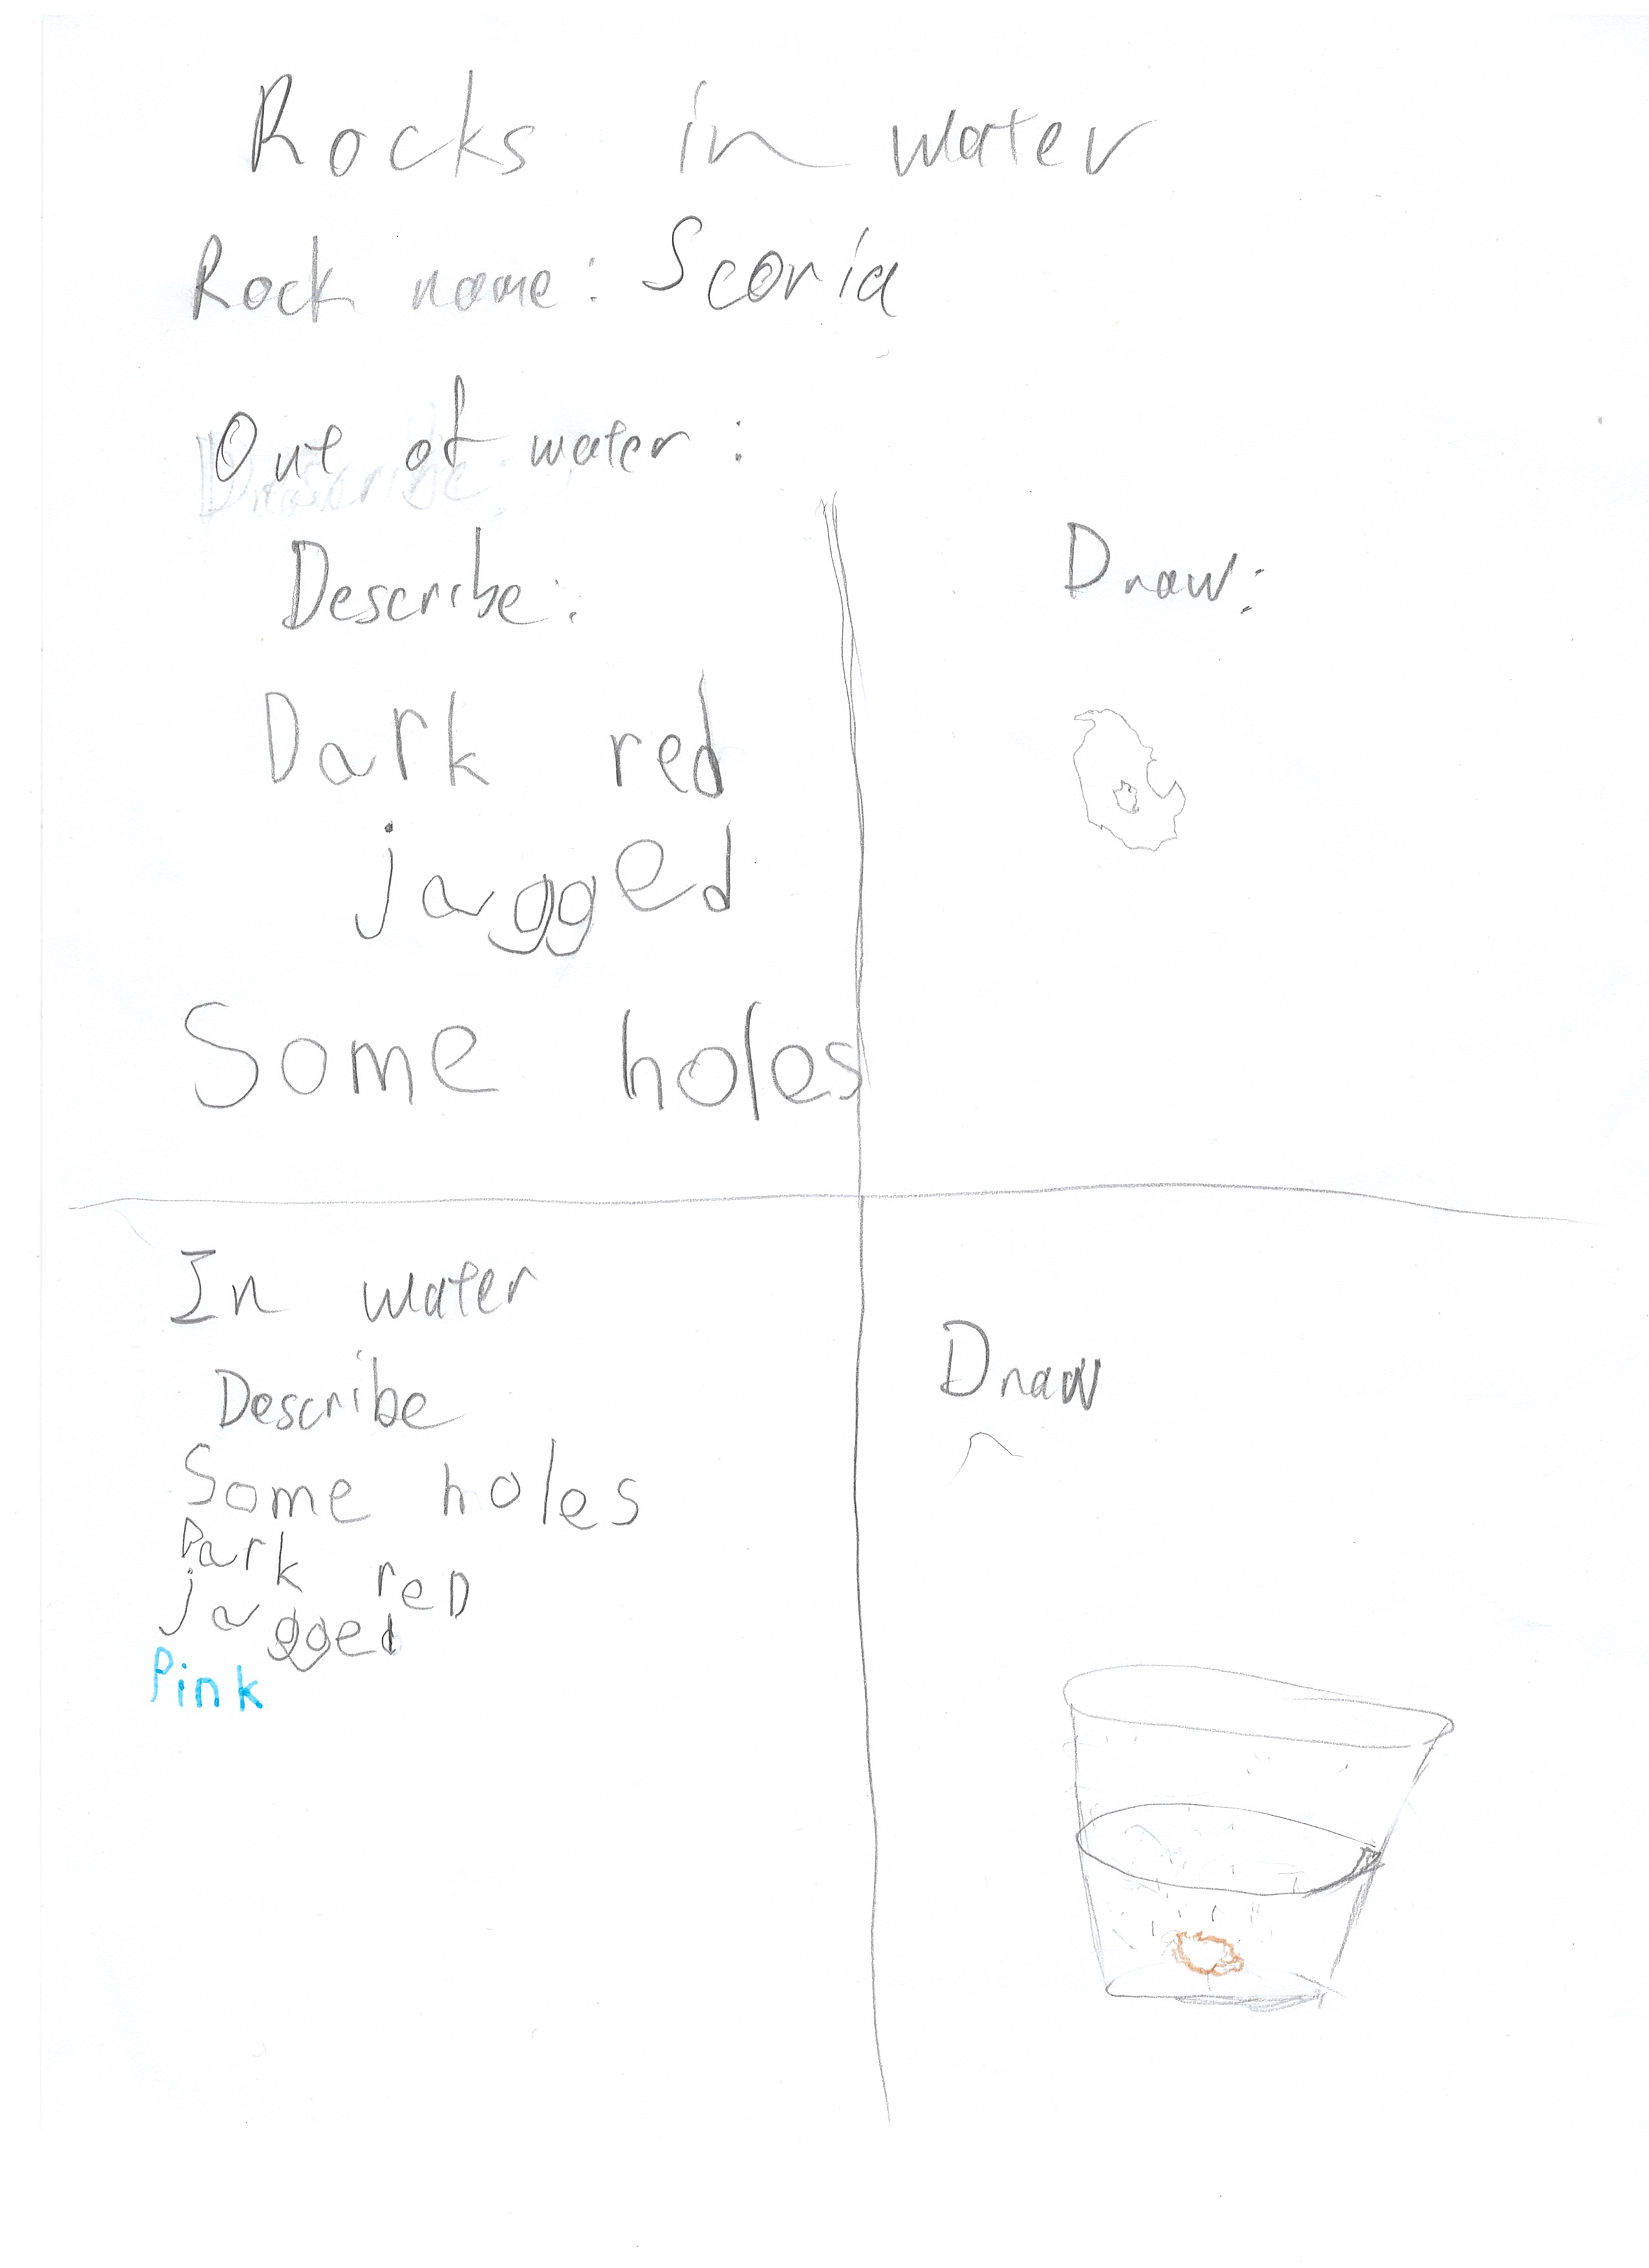 Rocks in water
Rock name: Scoria
Out of water:
Describe:
Draw:
Dark red
jagged
Some holes
In water
Describe
Draw
Some holes
Dark reD
jagged
Pink